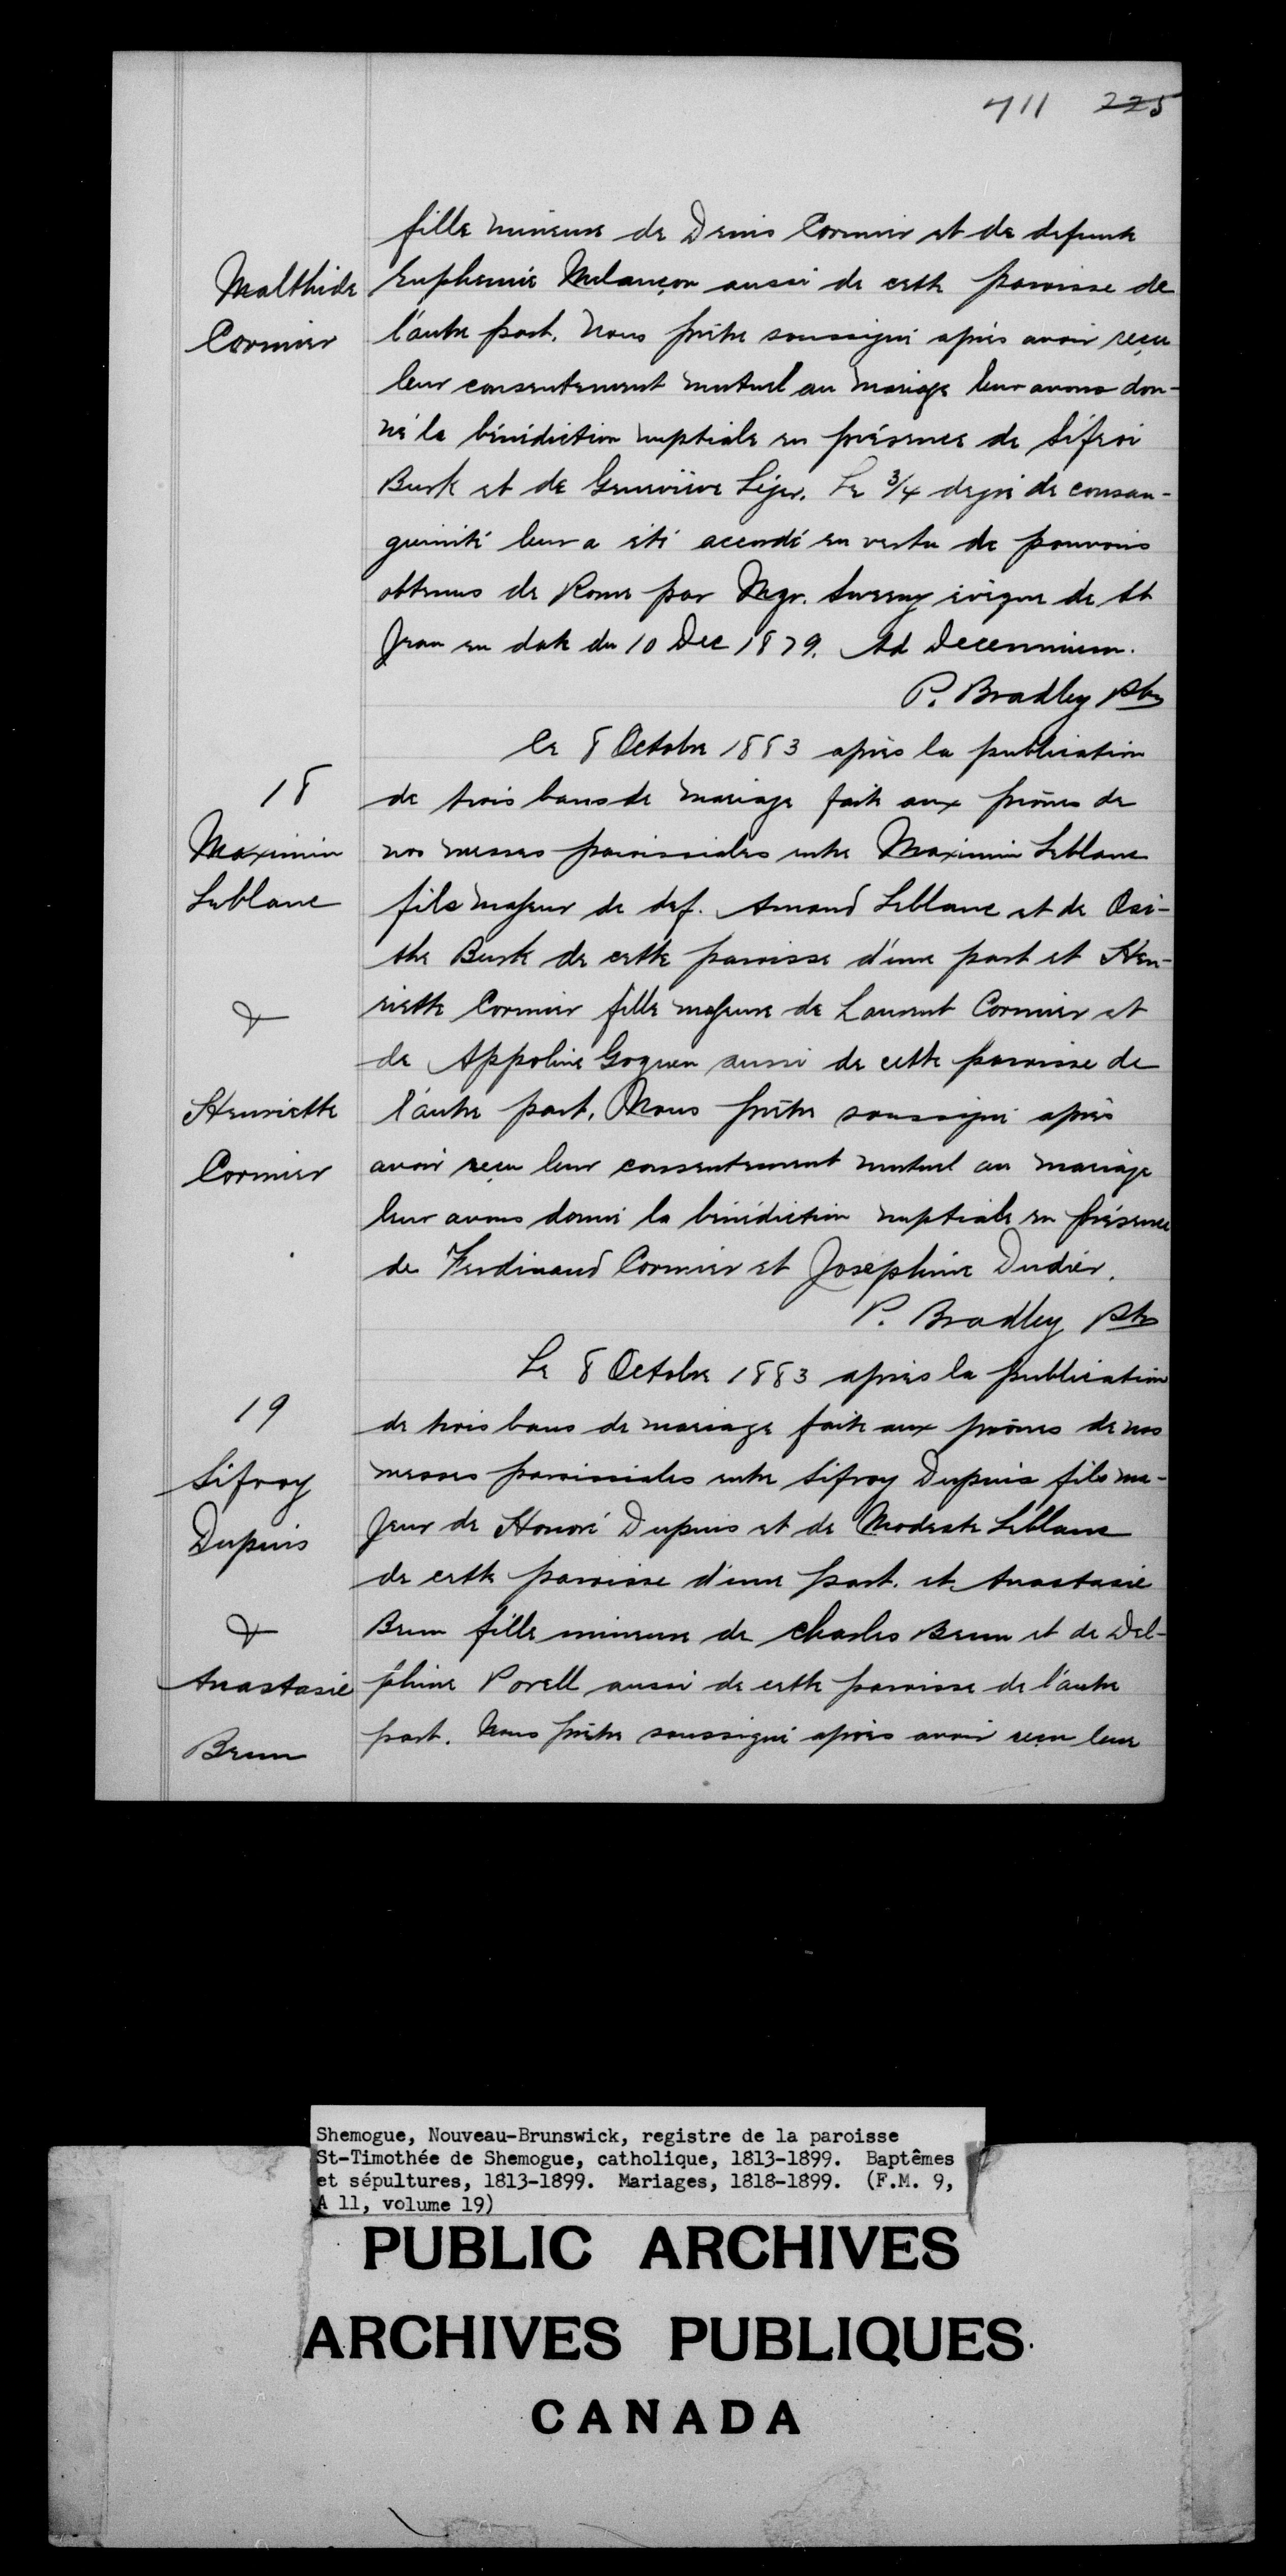 711 225
fille mineure de Denis Cormier et de defunte
Malthide
Cormier
Euphemie Melançon aussi de cette paroisse de
l'autre part. Nous prêtre soussigné après avoir reçu
leur consentement mutuel au mariage leur avons don-
né la bénédiction nuptiale en présence de Sifroi
Burk et de Geneviève Léger. Le 3/4 degré de consan-
guinité leur a été accordé en vertu de pouvoirs
obtenus de Rome par Mgr. Sweeny évêque de St
Jean en date du 10 Dec 1879. Ad Decennium.
P. Bradley Ptr
18
Maximin
Leblanc
&
Henriette
Cormier
Le 8 Octobre 1883 après la publication
de trois bans de mariage faite aux prônes de
nos messes paroissiales entre Maximin Leblanc
fils majeur de def. Amand Leblanc et de Osi-
the Burk de cette paroisse d'une part et Hen-
riette Cormier fille majeure de Laurent Cormier et
de Appoline Goguen aussi de cette paroisse de
l'autre part. Nous prêtre soussigné après
avoir reçu leur consentement mutuel au mariage
leur avons donné la bénédiction nuptiale en présence
de Ferdinand Cormier et Josephine Dudier.
P. Bradley Ptr
19
Sifroy
Dupuis
&
Anastasie
Brun
Le 8 Octobre 1883 après la publication
de trois bans de mariage faite aux prônes de nos
messes paroissiales entre Sifroy Dupuis fils ma-
jeur de Honoré Dupuis et de Modeste Léblanc
de cette paroisse d'une part. et Anastasie
Brun fille mineure de Charles Brun et de Del-
phine Porell aussi de cette paroisse de l'autre
part. Nous prêtre soussigné après avoir reçu leur
Shemogue, Nouveau-Brunswick, registre de la paroisse
St-Timothée de Shemogue, catholique, 1813-1899. Baptêmes
et sépultures, 1813-1899. Mariages, 1818-1899. (F.M. 9,
A 11, volume 19)
PUBLIC ARCHIVES
ARCHIVES PUBLIQUES
CANADA